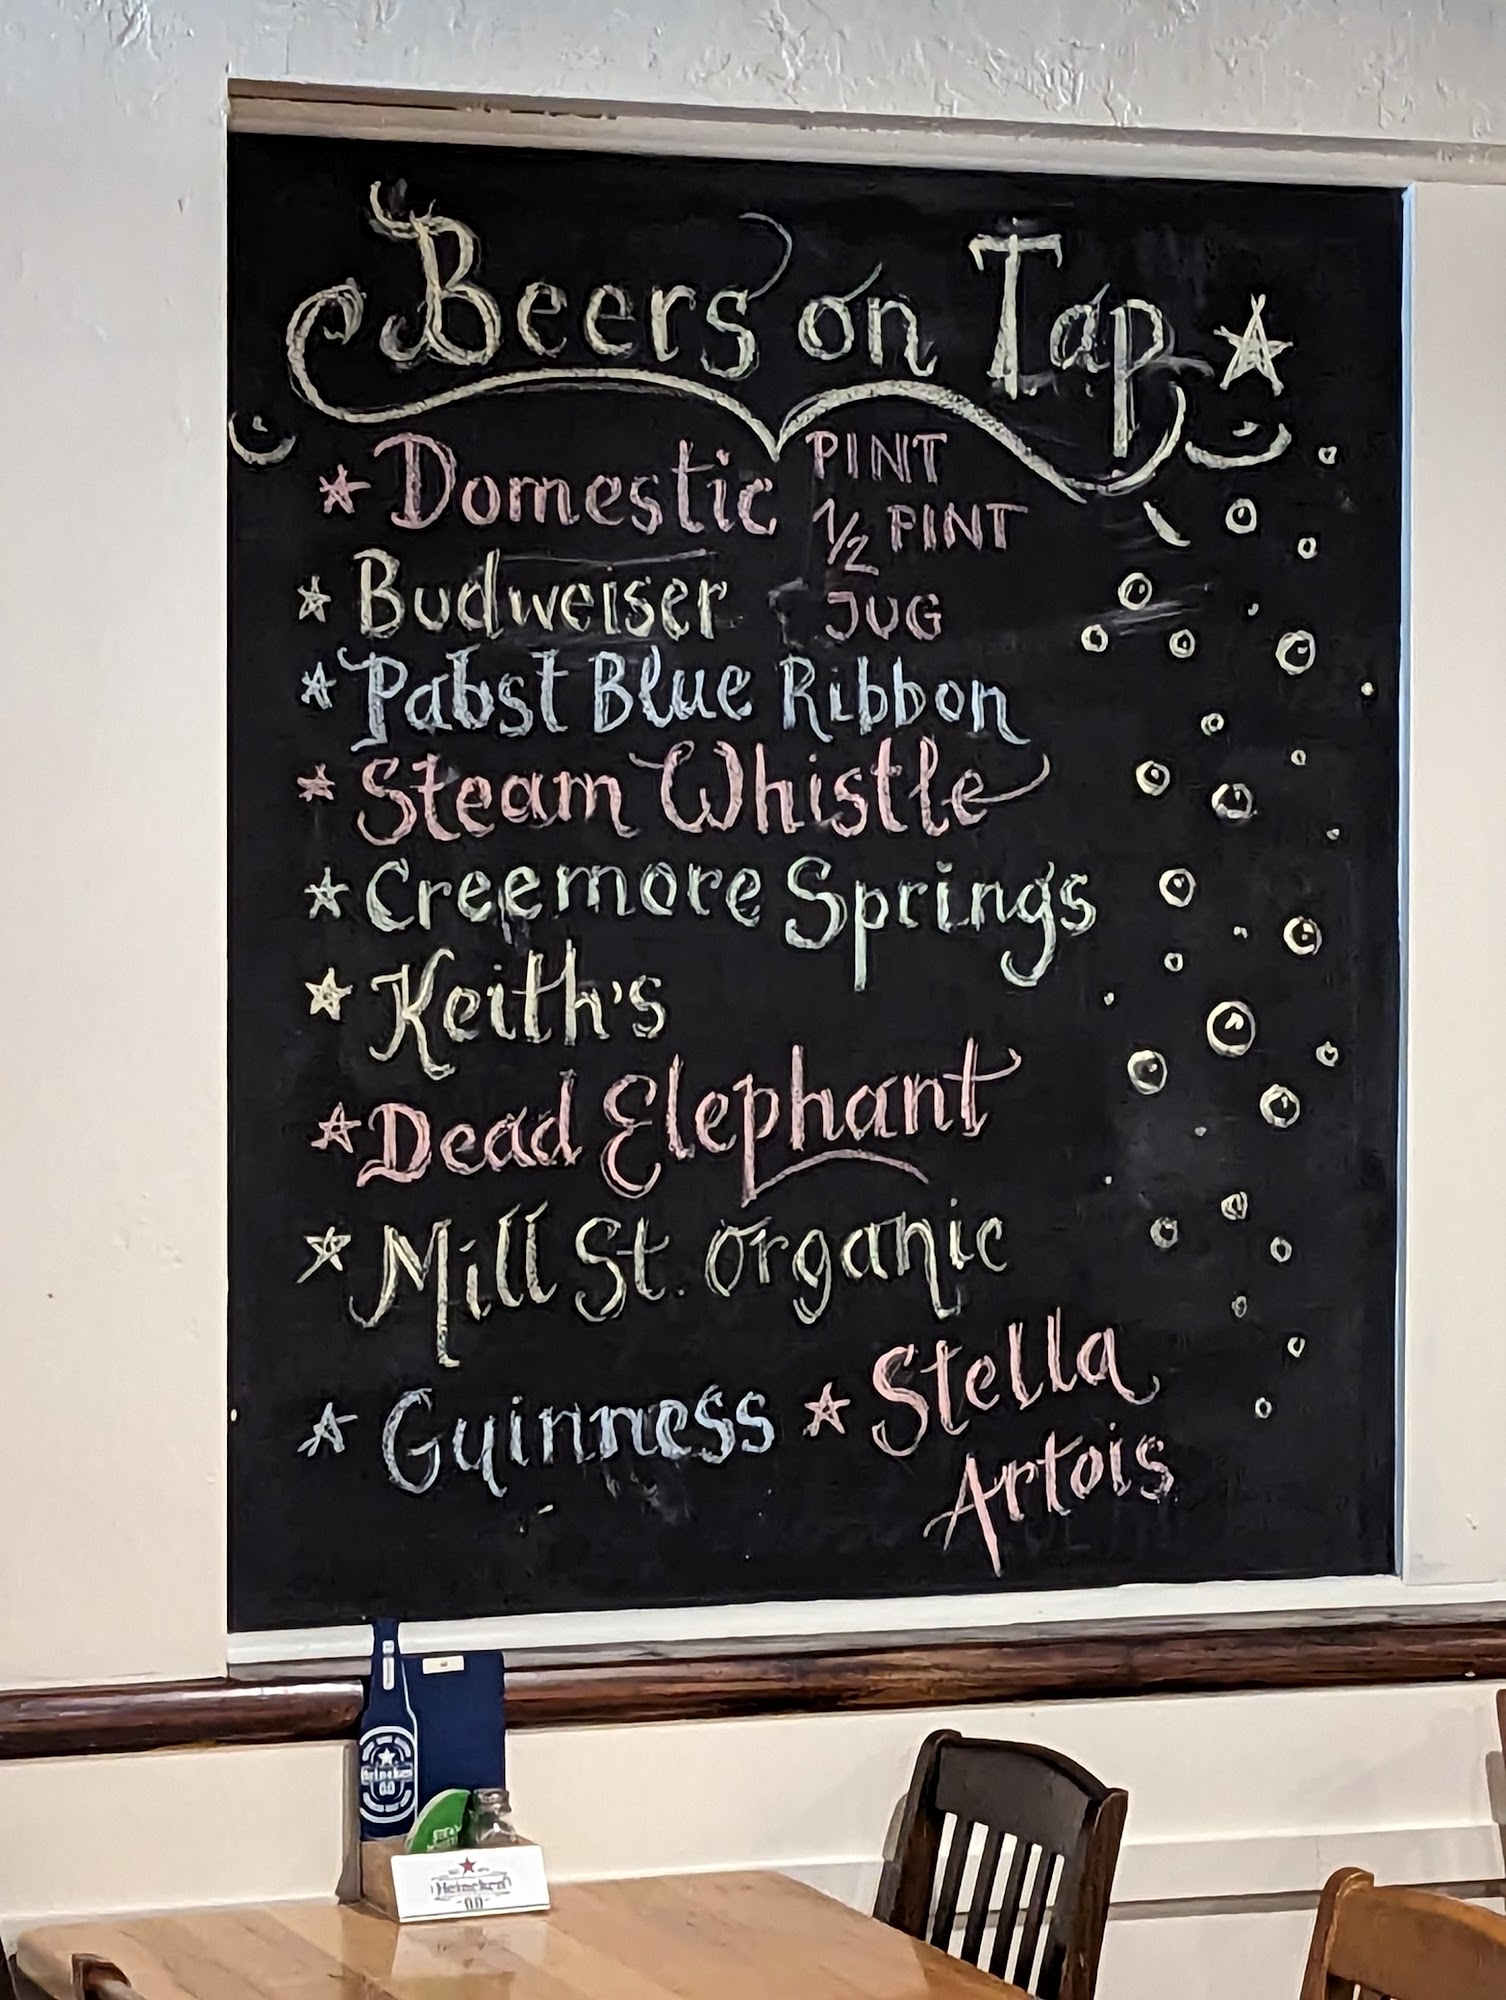 Beers on Tap
Domestic
PINT
1/2 PINT
JUG
Budweiser
Pabst Blue Ribbon
Steam Whistle
Creemore Springs
Keith's
Dead Elephant
Mill St. organic
Guinness
Stella
Artois
Heineken
0.0
Heineken
0.0